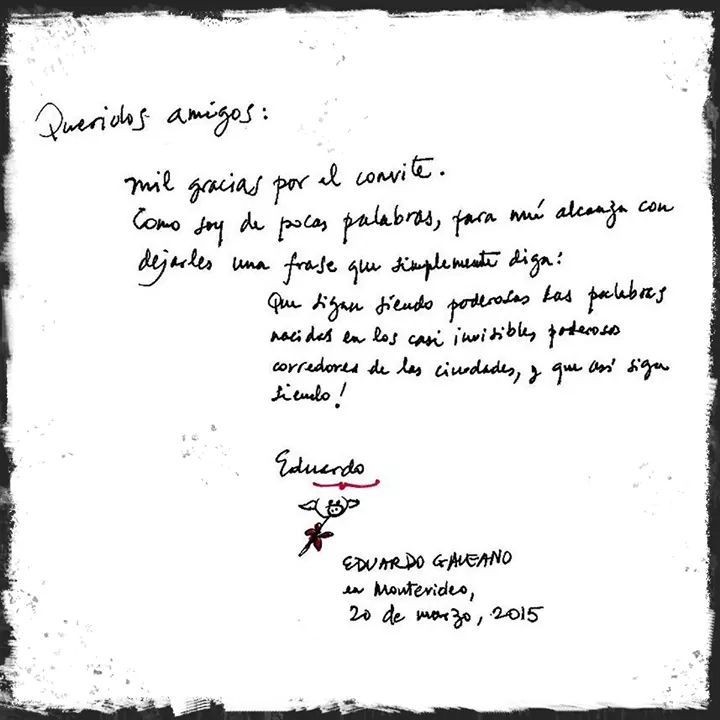 Queridos amigos:
mil gracias por el convite.
Como soy de pocas palabras, para mí alcanza con
dejarles una frase que simplemente diga:
Que sigan siendo poderosas las palabras
nacidas en los casi invisibles, poderosos
corredores de las ciudades, y que así siga
siendo!
Eduardo
EDUARDO GALEANO
en Montevideo,
20 de marzo, 2015